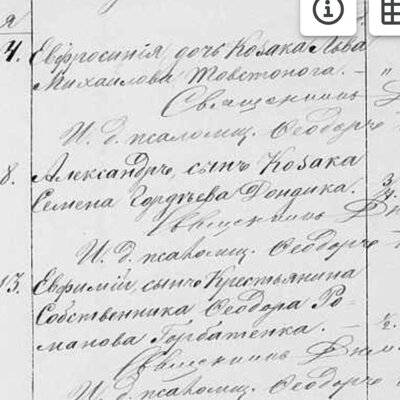 я
4. Евфросинія, дочь Козака Льва
Михаилова Товстонога. — "
Священникъ
И. д. псаломщ. Ѳеодоръ
8. Александръ, сынъ Козака
Семена Гордѣева Дондика. 3/4.
Священникъ
И. д. псаломщ. Ѳеодоръ
13. Евфимій, сынъ Крестьянина
Собственника Ѳеодора Ро-
манова Горбатенка. —
Священникъ
И. д. псаломщ. Ѳеодоръ